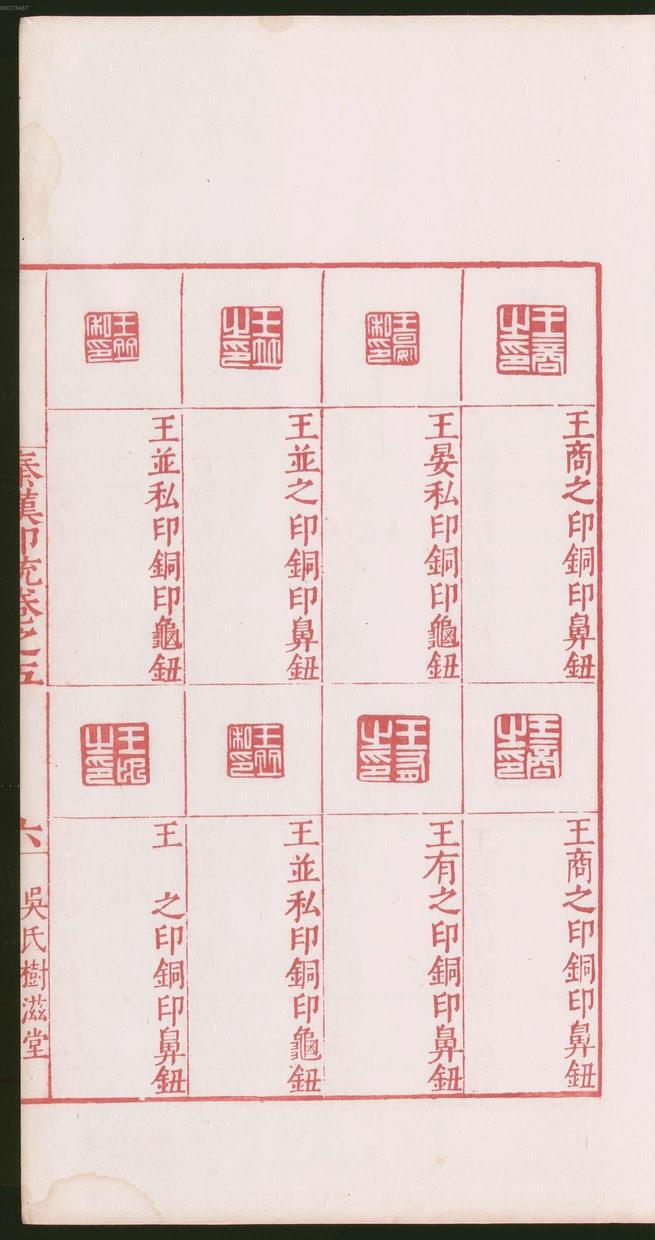 00073467
王商之印銅印鼻鈕
王晏私印銅印龜鈕
王並之印銅印鼻鈕
王並私印銅印龜鈕
王商之印銅印鼻鈕
王有之印銅印鼻鈕
王並私印銅印龜鈕
王　之印銅印鼻鈕
秦漢印統卷之五
六
吳氏樹滋堂